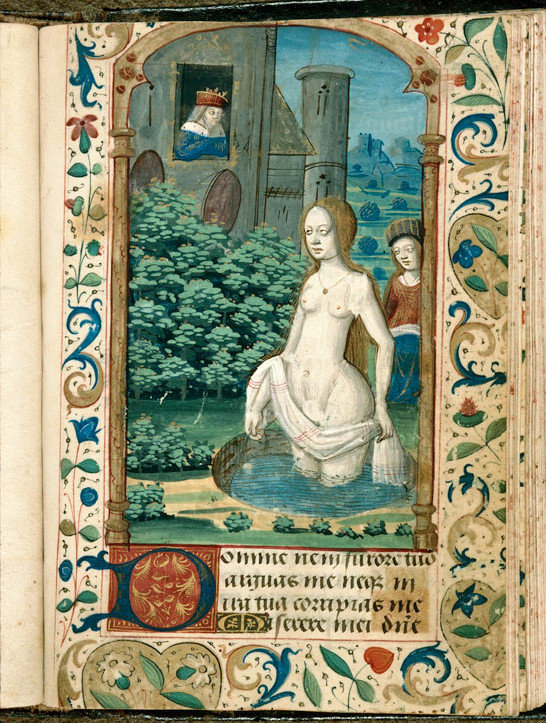 Domine ne in furore tuo
arguas me neqz in
ira tua corripias me
Miserere mei dn̄e